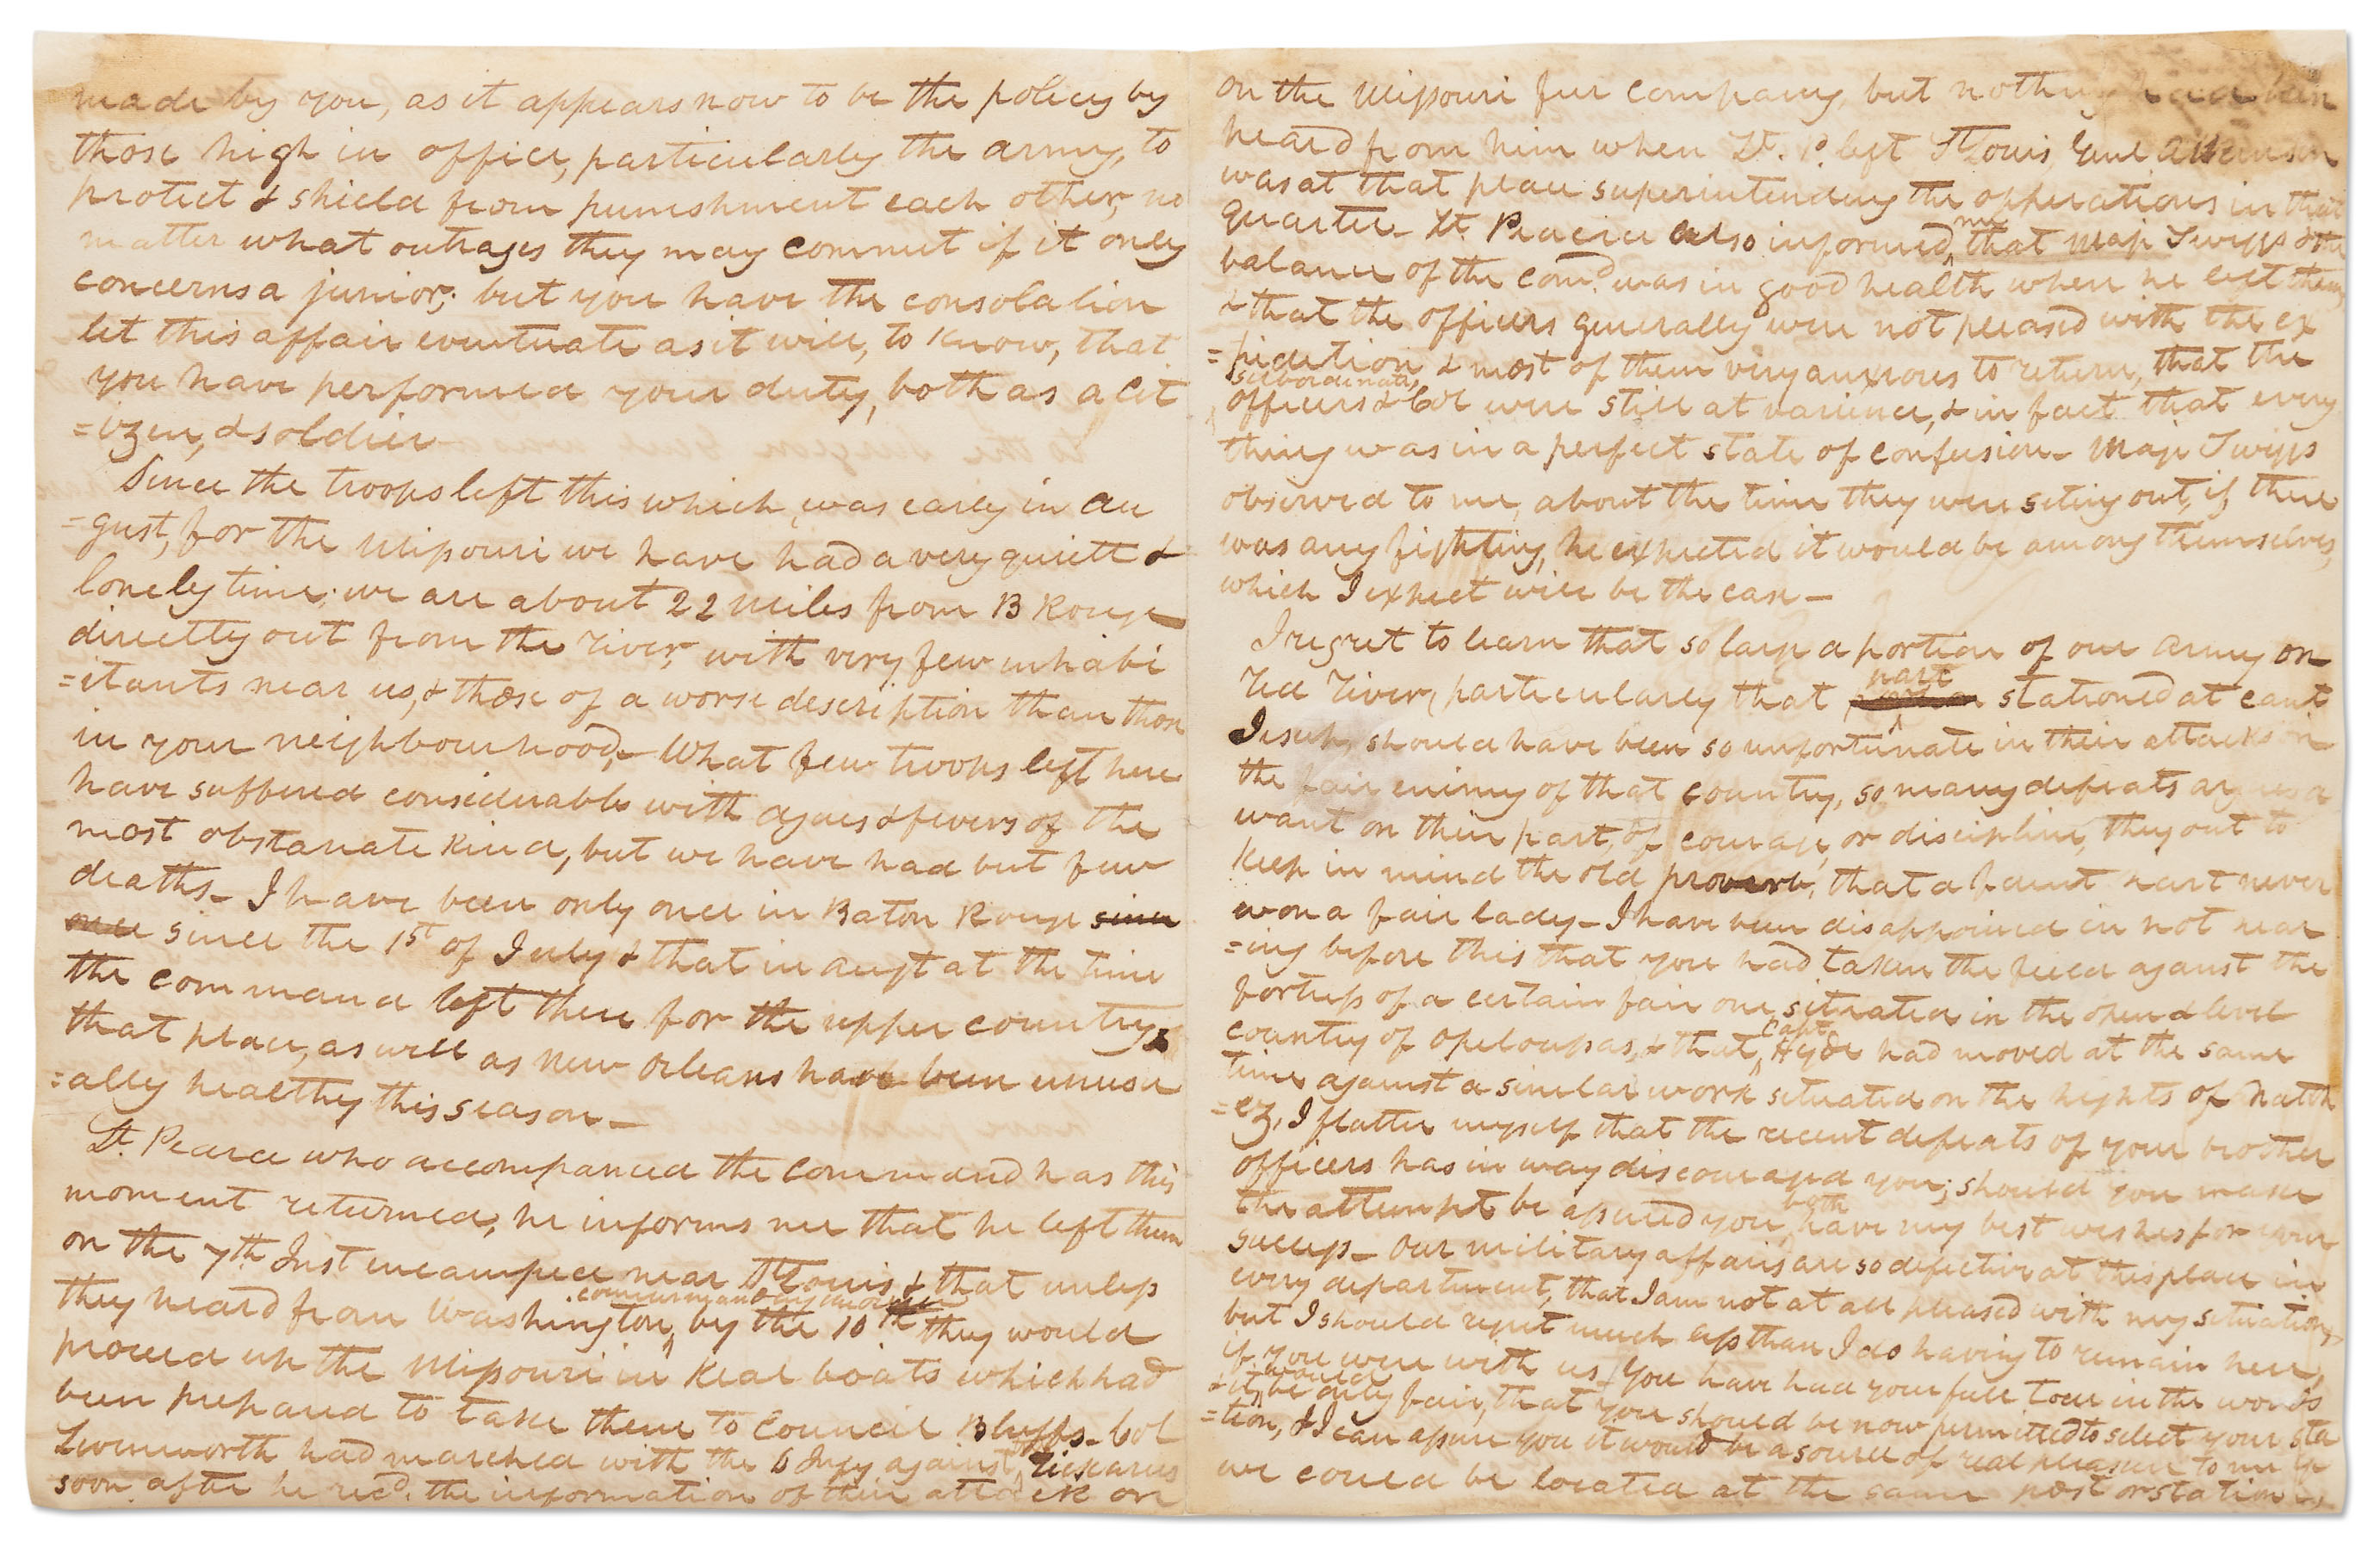 made by you, as it appears now to be the policy by
those high in office, particularly the army, to
protect & shield from punishment each other, no
matter what outrages they may commit if it only
concerns a junior; but you have the consolation
let this affair eventuate as it will, to know, that
you have performed your duty, both as a cit
=izen, & soldier
Since the troops left this which, was early in Au
=gust, for the Missouri we have had a very quiett &
lonely time; we are about 22 miles from B Rouge
directly out from the river, with very few inhabi
=itants near us, & those of a worse description than those
in your neighbourhood,- What few troops left here
have suffered considerable with agues & fevers of the
most obstanate kind, but we have had but few
deaths- I have been only once in Baton Rouge since
once since the 1st of July & that in augt at the time
the command left there for the upper country,
that place, as well as New Orleans have been unusu
=ally healthy this season-
Lt. Pearce who accompanied the command has this
moment returned, he informs me that he left them
on the 7th Inst encamped near St Louis & that unless
they heard from Washington, by the 10th they would
proceed up the Missouri in Keal boats which had
been prepared to take them to Council Bluffs- Col
Livenworth had marched with the 6 Infy against Rickarees
soon after he recd. the information of their attack on
on the Missouri fur company, but nothing had been
heard from him when Lt. P. left St Louis, Genl Atkinson
was at that place superintending the opperations in that
quarter- Lt. Pearce also informed me that Maj Twiggs & the
balance of the comd. was in good health when he left them,
& that the officers generally were not pleased with the ex
=pidition, & most of them very anxious to return, that the
subordinate
officers & Col were still at varience, & in fact that every
thing was in a perfect state of confusion- Maj Twiggs
observed to me, about the time they were seting out, if there
was any fighting, he expected it would be among themselves,
which I expect will be the case-
I regret to learn that so large a portion of our army on
red river, particularly that part stationed at cant
Jesup, should have been so unfortunate in their attacks on
the fair enimy of that country, so many defeats argues a
want on their part, of courage, or discipline, they out to
keep in mind the old proverb, that a faint hart never
won a fair lady- I have been disappoined in not hear
=ing before this that you had taken the field against the
fortress of a certain fair one situated in the open & level
country of Opelousas, & that Capt Hyde had moved at the same
time against a similar work situated on the hights of Natch
=ez, I flatter myself that the recent defeats of your brother
officers has in way discouraged you; should you make
the attempt be assured you both have my best wishes for your
success- Our military affairs are so defective at this place in
every department, that I am not at all pleased with my situation,
but I should regret much less than I do having to remain here,
if you were with us, You have had your full tour in the woods
& it would be only fair, that you should be now permitted to select your sta
=tion, & I can assure you it would be a source of real pleasure to me if
we could be located at the same post or station,